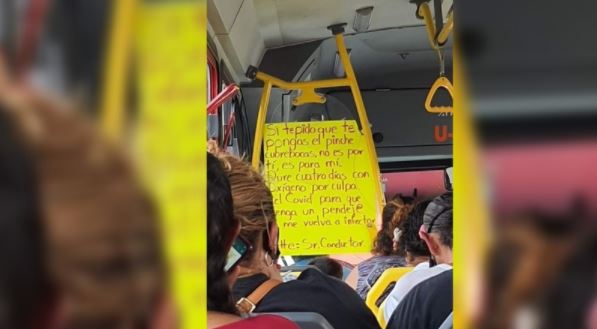 Si te pido que te
pongas el pinche
cubrebocas, no es por
ti, es para mi.
Dure cuatro días con
oxígeno por culpa
del Covid para que
venga un pendejo
me vuelva a infectar
Atte: Sr. Conductor
U-